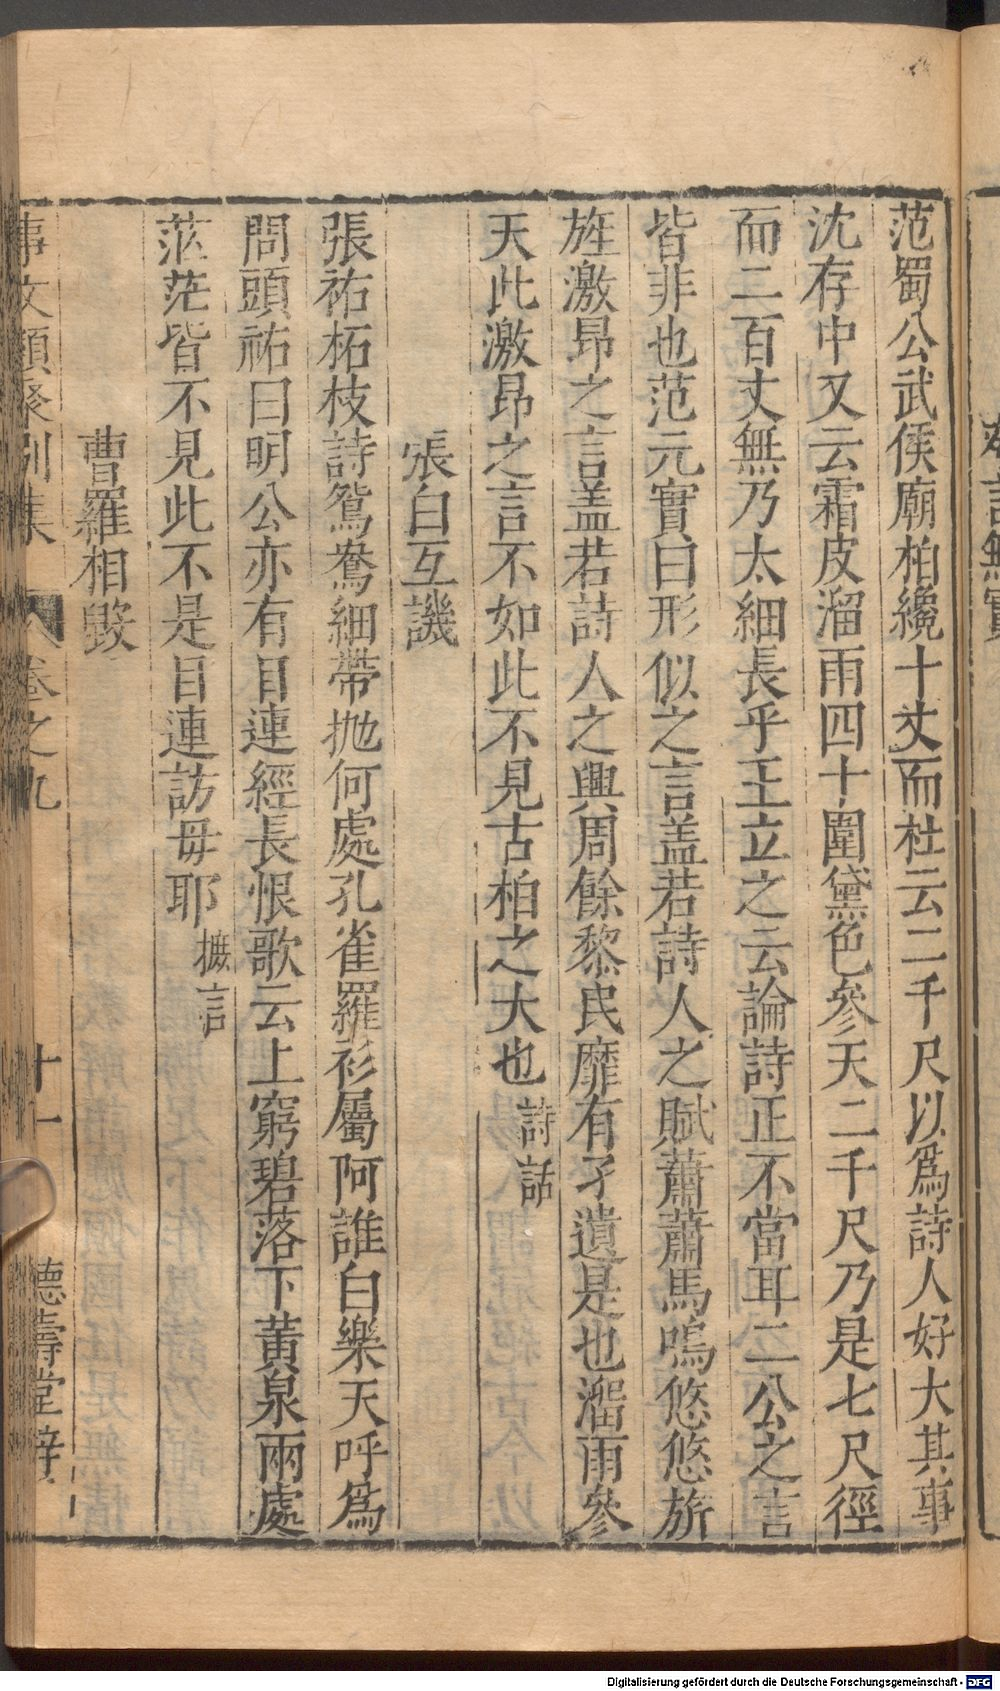 范蜀公武侯廟柏纔十丈而杜云二千尺以爲詩人好大其事
沈存中又云霜皮溜雨四十圍黛色參天二千尺乃是七尺徑
而二百丈無乃太細長乎王立之云論詩正不當耳二公之言
皆非也范元實曰形似之言盖若詩人之賦蕭蕭馬鳴悠悠旂
旌激昂之言盖若詩人之興周餘黎民靡有孑遺是也溜雨參
天此激昂之言不如此不見古柏之大也詩話
張白互譏
張祐柘枝詩鴛鴦細帶抛何處孔雀羅衫屬阿誰白樂天呼爲
問頭祐曰明公亦有目連經長恨歌云上窮碧落下黄泉兩處
茫茫皆不見此不是目連訪母耶摭言
曹羅相毀
事文類聚別集 卷之九 十一 德壽堂梓
Digitalisierung gefördert durch die Deutsche Forschungsgemeinschaft - DFG